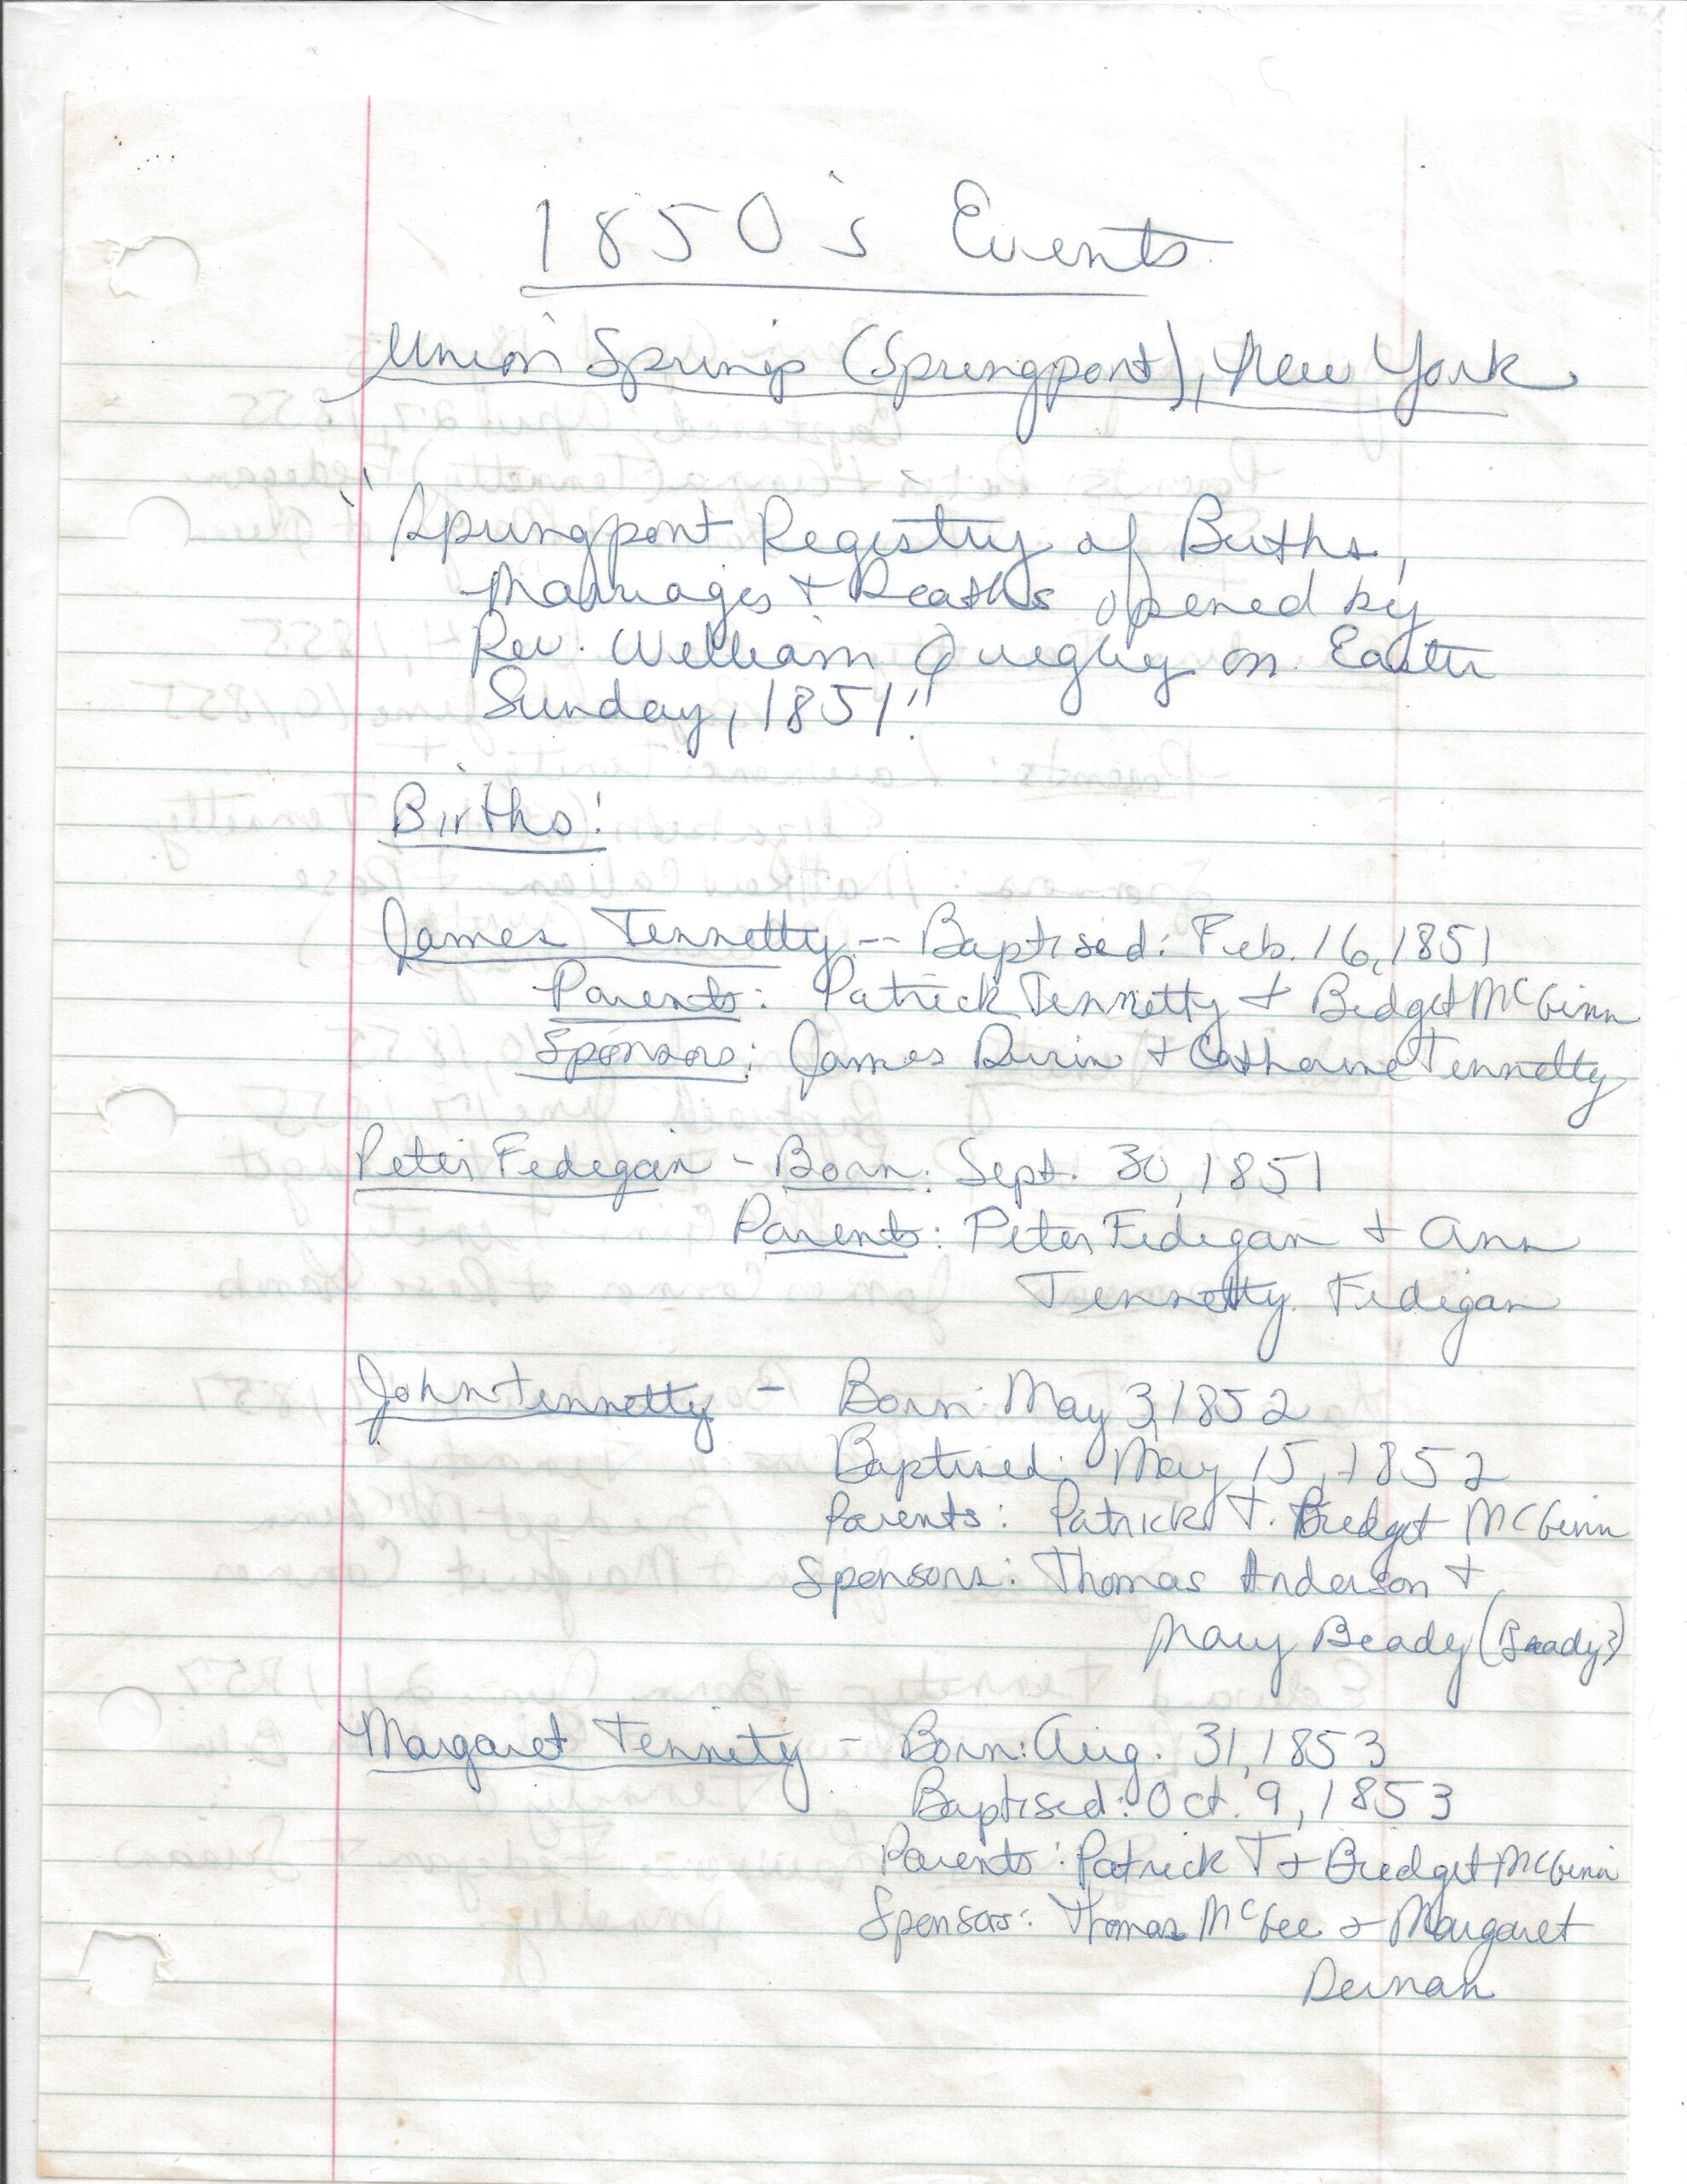 1850's Events
Union Springs (Springport), New York
"Springport Registry of Births,
Marriages + Deaths opened by
Rev. William Quigley on Easter
Sunday, 1851".
Births:
James Tennetty -- Baptised: Feb. 16, 1851
Parents: Patrick Tennetty + Bridget McGinn
Sponsors: James + Catherine Tennetty
Peter Fedigan - Born: Sept. 30, 1851
Parents: Peter Fedigan + Ann
Tennetty Fedigan
John Tennetty - Born: May 3, 1852
Baptised: May 15, 1852
Parents: Patrick T. Bridget McGinn
Sponsors: Thomas Anderson +
Mary Beady (Brady?)
Margaret Tennety - Born: Aug. 31, 1853
Baptised: Oct. 9, 1853
Parents: Patrick T + Bridget McGinn
Sponsors: Thomas McGee + Margaret
Dernan